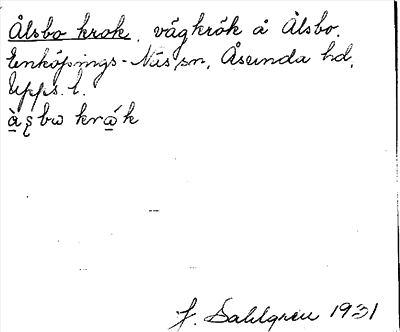 Ålsbo krok, vägkrök å Ålsbo.
Enköpings-Näs sn, Åsunda hd,
Upps. l.
kråk
J. Sahlgren 1931